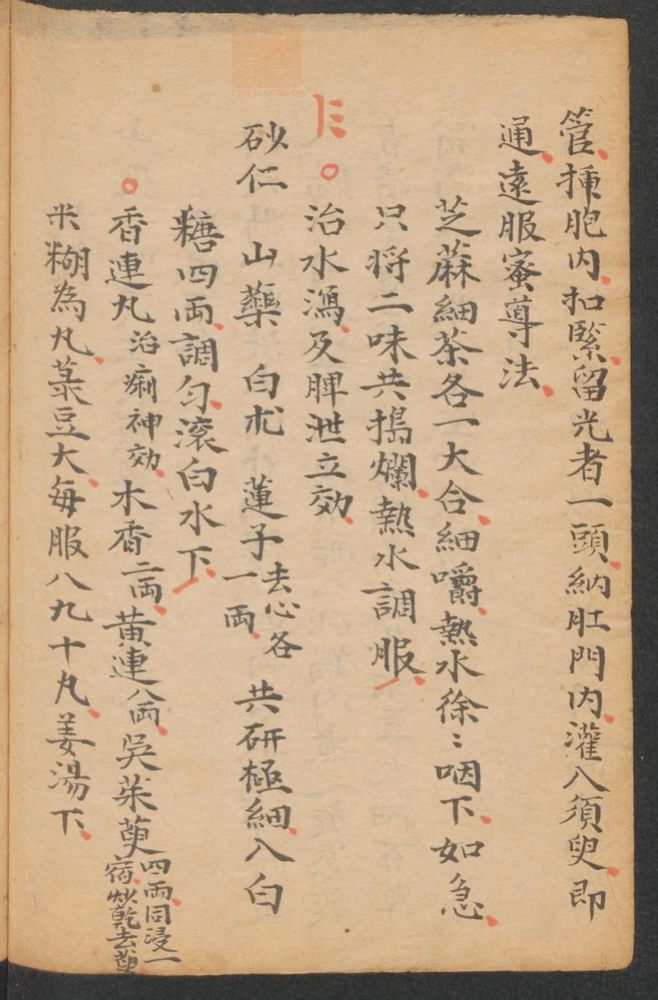 管揷胞内扣緊留光者一頭納肛門内灌入須臾即
通遠服蜜導法
芝蔴細茶各一大合細嚼熱水徐〻咽下如急
只将二味共搗爛熱水調服
治水瀉及脾泄立効
砂仁 山藥 白朮 蓮子去心各一両 共研極細入白
糖四両調匀滚白水下
香連丸治痢神効木香二両黄連八両吳茱萸四両同浸一宿炒乾去萸
米糊為丸菉豆大每服八九十丸姜湯下